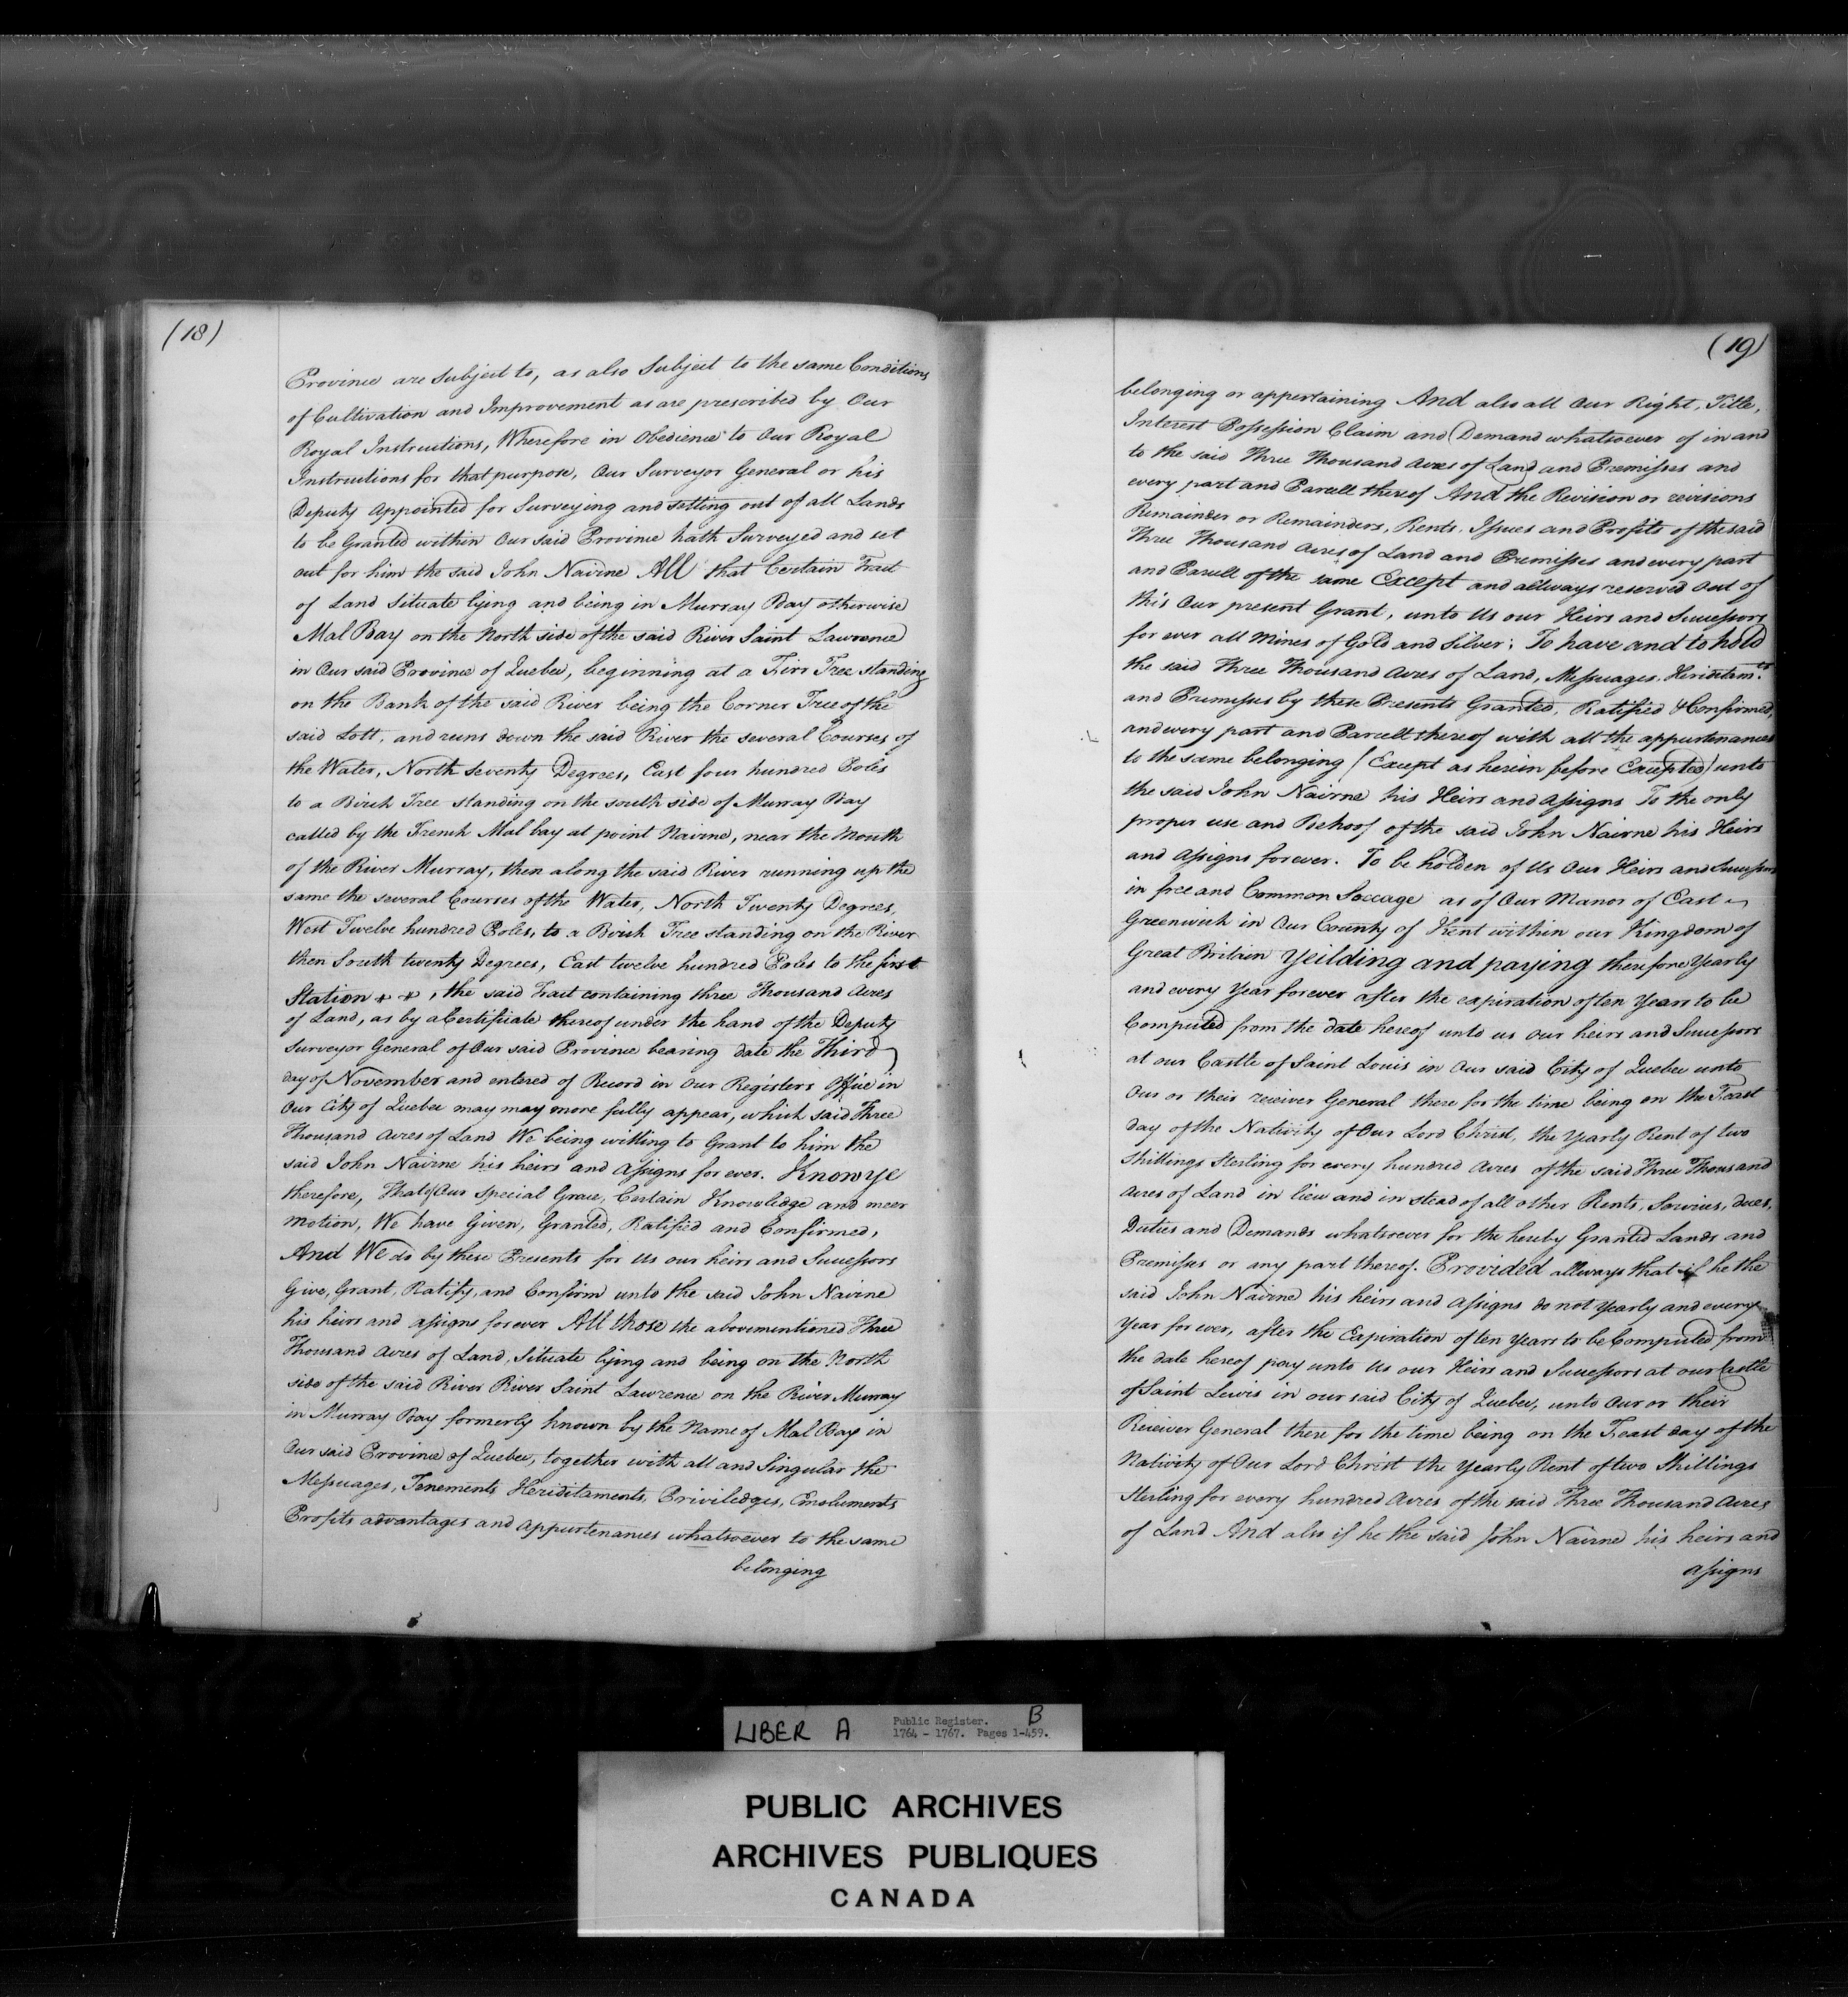 (18)
Province are Subject to, as also Subject to the same Conditions
of Cultivation and Improvement as are prescribed by Our
Royal Instructions, Wherefore in Obedience to Our Royal
Instructions for that purpose, Our Surveyor General or his
Deputy Appointed for Surveying and setting out of all Lands
to be Granted within Our said Province hath Surveyed and set
out for him the said John Nairne All that Certain Tract
of Land Situate lying and being in Murray Bay otherwise
Mal Bay on the North side of the said River Saint Lawrence
in Our said Province of Quebec, beginning at a Firr Tree standing
on the Bank of the said River being the Corner Tree of the
said Lott, and runs down the said River the several Courses of
the Water, North Seventy Degrees, East four hundred Poles
to a Birch Tree standing on the south side of Murray Bay
called by the French Mal bay at point Nairne, near the Mouth
of the River Murray, then along the said River running up the
same the several Courses of the Water, North Twenty Degrees,
West Twelve hundred Poles, to a Birch Tree standing on the River
then South twenty Degrees, East twelve hundred Poles to the first
Station + +, the said Tract containing three Thousand Acres
of Land, as by a Certificate thereof under the hand of the Deputy
Surveyor General of Our said Province bearing date the Third
day of November and entered of Record in Our Registers Office in
Our City of Quebec may may more fully appear, which said Three
Thousand Acres of Land We being willing to Grant to him the
said John Nairne his heirs and Assigns for ever. Know ye
therefore, That of Our Special Grace, Certain Knowledge and meer
motion, We have Given, Granted, Ratified and Confirmed,
And We do by these Presents for Us our heirs and Successors
Give, Grant, Ratify, and Confirm unto the said John Nairne
his heirs and assigns forever All those the abovementioned Three
Thousand Acres of Land, Situate lying and being on the North
side of the said River River Saint Lawrence on the River Murray
in Murray Bay formerly known by the Name of Mal Bay in
Our said Province of Quebec, together with all and Singular the
Messuages, Tenements Heriditaments, Priviledges, Emoluments
Profits advantages and appurtenances whatsoever to the same
belonging
(19)
belonging or appertaining And also all Our Right, Title,
Interest Possession Claim and Demand whatsoever of in and
to the said Three Thousand Acres of Land and Premisses and
every part and Parcell thereof And the Revision or revisions
Remainder or Remainders, Rents, Issues and Profits of the said
Three Thousand Acres of Land and Premisses and every part
and Parcell of the same Except and allways reserved out of
this Our present Grant, unto Us our Heirs and Successors
for ever all Mines of Gold and Silver; To have and to hold
the said Three Thousand Acres of Land, Messuages, Heriditamts.
and Premisses by these Presents Granted, Ratified & Confirmed,
and every part and Parcell thereof with all the appurtenances
to the same belonging (Except as herein before Excepted) unto
the said John Nairne his Heirs and Assigns To the only
proper use and Behoof of the said John Nairne his Heirs
and Assigns forever. To be holden of Us Our Heirs and Successors
in free and Common Soccage as of Our Manor of East
Greenwich in Our County of Kent within our Kingdom of
Great Britain Yeilding and paying therefore Yearly
and every Year forever after the expiration of ten Years to be
Computed from the date hereof unto us our heirs and Successors
at our Castle of Saint Louis in Our said City of Quebec unto
Our or their receiver General there for the time being on the Feast
day of the Nativity of Our Lord Christ, the Yearly Rent of two
Shillings Sterling for every hundred Acres of the said Three Thousand
Acres of Land in lieu and in stead of all other Rents, Services, dues,
Duties and Demands whatsoever for the hereby Granted Lands and
Premisses or any part thereof. Provided allways that if he the
said John Nairne his heirs and Assigns do not Yearly and every
Year for ever, after the Expiration of ten Years to be Computed from
the date hereof pay unto Us our Heirs and Successors at our Castle
of Saint Lewis in our said City of Quebec, unto Our or their
Receiver General there for the time being on the Feast day of the
Nativity of Our Lord Christ the Yearly Rent of two Shillings
Sterling for every hundred Acres of the said Three Thousand Acres
of Land And also if he the said John Nairne his heirs and
assigns
LIBER A
Public Register. B
1764 - 1767. Pages 1-459.
PUBLIC ARCHIVES
ARCHIVES PUBLIQUES
CANADA